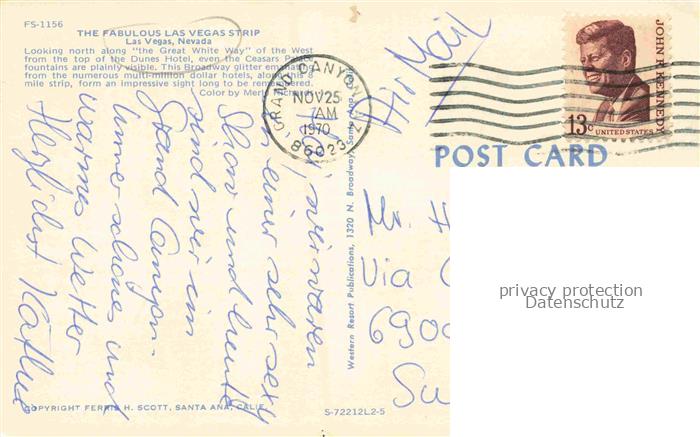 FS-1156
THE FABULOUS LAS VEGAS STRIP
Las Vegas, Nevada
Looking north along "the Great White Way" of the West
from the top of the Dunes Hotel, even the Ceasars Palace
fountains are plainly visible. This Broadway glitter emanating
from the numerous multi-million dollar hotels, along this 8
mile strip, form an impressive sight long to be remembered.
Color by Merle
wir waren
in einer sehr sexy
Show und heute
sind wir im
Grand Canyon.
Immer schönes und
warmes Wetter
Herzlichst
COPYRIGHT FERRIS H. SCOTT, SANTA ANA, CALIF.
S-72212L2-5
Western Resort Publications, 1320 N. Broadway, Santa
GRAND CANYON
NOV 25
AM
1970
86023
Air Mail
JOHN F. KENNEDY
13c UNITED STATES
POST CARD
Via
690
Su
privacy protection
Datenschutz